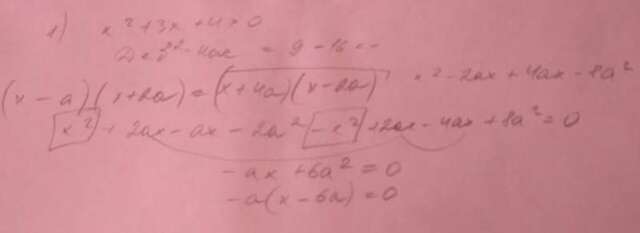 1) x² + 3x + 4 > 0
D = b² - 4ac = 9 - 16 = -
(x - a)(x + 2a) = (x + 4a)(x - 2a) x² - 2ax + 4ax - 8a²
x² + 2ax - ax - 2a² - x² + 2ax - 4ax + 8a² = 0
-ax + 6a² = 0
-a(x - 6a) = 0